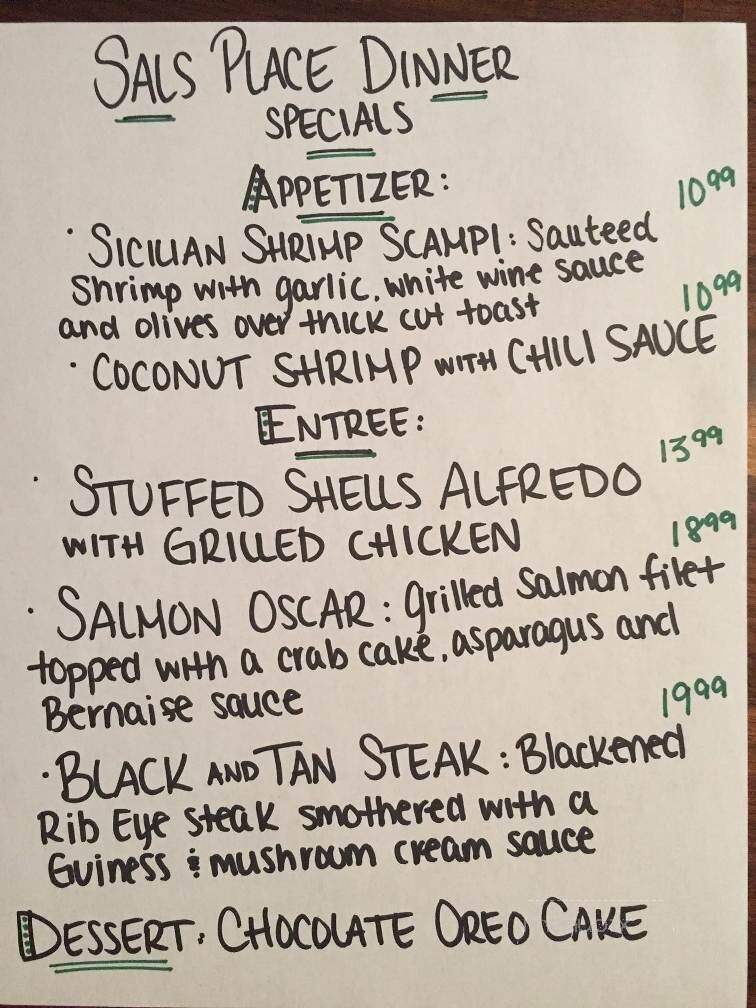 SALS PLACE DINNER
SPECIALS
APPETIZER:
10 99
• SICILIAN SHRIMP SCAMPI: Sauteed
Shrimp with garlic, white wine sauce
and olives over thick cut toast
10 99
• COCONUT SHRIMP WITH CHILI SAUCE
ENTREE:
13 99
• STUFFED SHELLS ALFREDO
WITH GRILLED CHICKEN
18 99
• SALMON OSCAR: grilled Salmon filet
topped with a crab cake, asparagus and
Bernaise sauce
19 99
• BLACK AND TAN STEAK: Blackened
Rib Eye steak smothered with a
Guiness & mushroom cream sauce
DESSERT: CHOCOLATE OREO CAKE